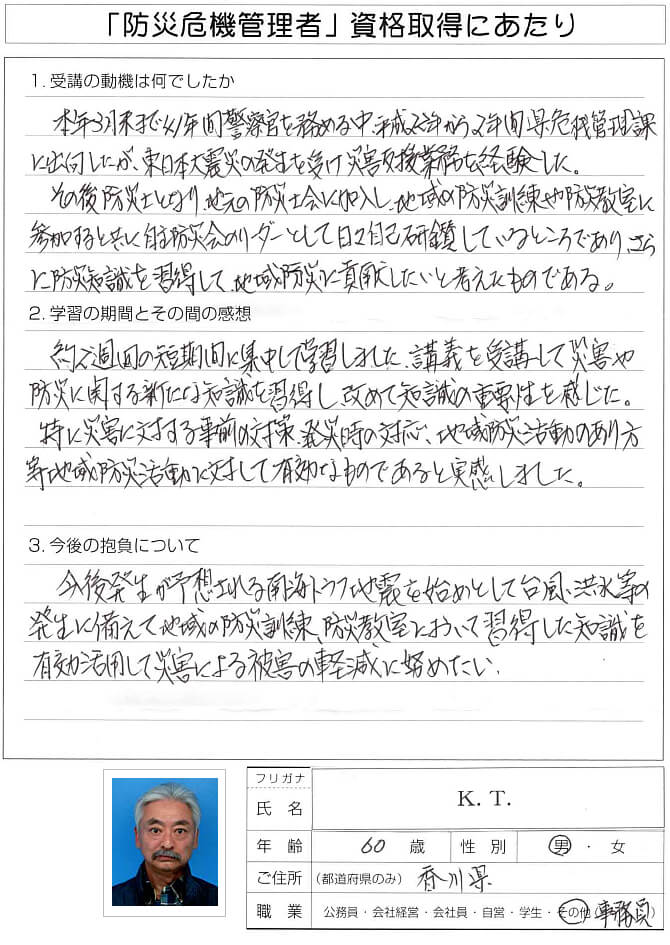 「防災危機管理者」資格取得にあたり
1. 受講の動機は何でしたか
本年3月末まで41年間警察官を務める中、平成22年から2年間県危機管理課
に出向したが、東日本大震災の発生を受け災害支援業務を経験した。
その後防災士となり、地元の防災士会に加入し、地域の防災訓練や防災教室に
参加すると共に自主防災会のリーダーとして日々自己研鑽しているところであり、さら
に防災知識を習得して、地域防災に貢献したいと考えたものである。
2. 学習の期間とその間の感想
約2週間の短期間に集中して学習しました。講義を受講して災害や
防災に関する新たな知識を習得し、改めて知識の重要性を感じた。
特に災害に対する事前の対策、発災時の対応、地域防災活動のあり方
等地域防災活動に対して有効なものであると実感しました。
3. 今後の抱負について
今後発生が予想される南海トラフ地震を始めとして台風、洪水等の
発生に備えて地域の防災訓練、防災教室において習得した知識を
有効活用して災害による被害の軽減に努めたい。
フリガナ
氏 名 K. T.
年 齢 60 歳 性 別 男 ・ 女
ご住所 (都道府県のみ) 香川県
職 業 公務員・会社経営・会社員・自営・学生・その他( 事務員 )